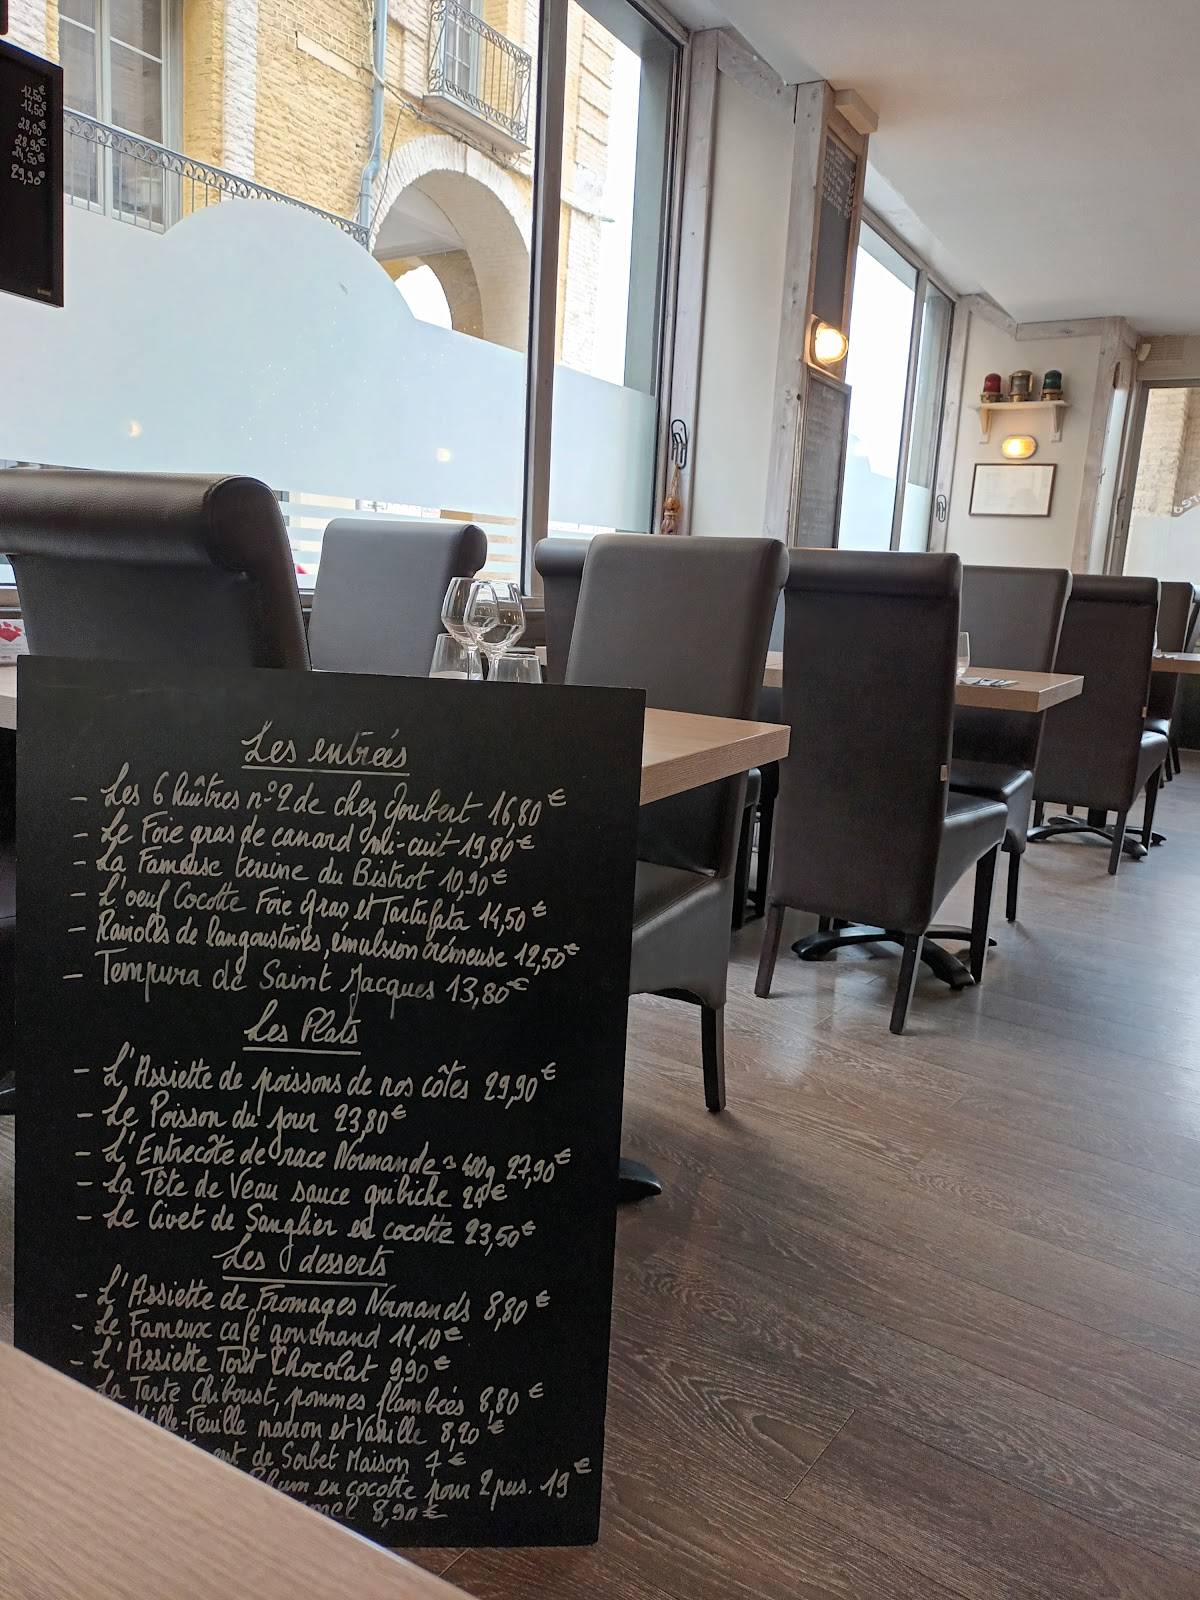 12,50€
12,50€
28,90€
28,90€
24,50€
29,90€
Les entrées
- Les 6 huîtres n°2 de chez Joubert 16,80€
- Le Foie gras de canard mi-cuit 19,80€
- La Fameuse terrine du Bistrot 10,90€
- L'oeuf Cocotte Foie Gras et Tartufata 14,50€
- Ravioles de langoustines, émulsion crémeuse 12,50€
- Tempura de Saint Jacques 13,80€
Les Plats
- L'Assiette de poissons de nos côtes 29,90€
- Le Poisson du jour 23,80€
- L'Entrecôte de race Normande ~ 400g 27,90€
- La Tête de Veau sauce gribiche 24€
- Le Civet de Sanglier en cocotte 23,50€
Les desserts
- L'Assiette de Fromages Normands 8,80€
- Le Fameux café gourmand 11,10€
- L'Assiette Tout Chocolat 9,90€
La Tarte Chiboust, pommes flambées 8,80€
Mille-Feuille marron et Vanille 8,20€
de Sorbet Maison 7€
Rhum en cocotte pour 2 pers. 19€
8,90€